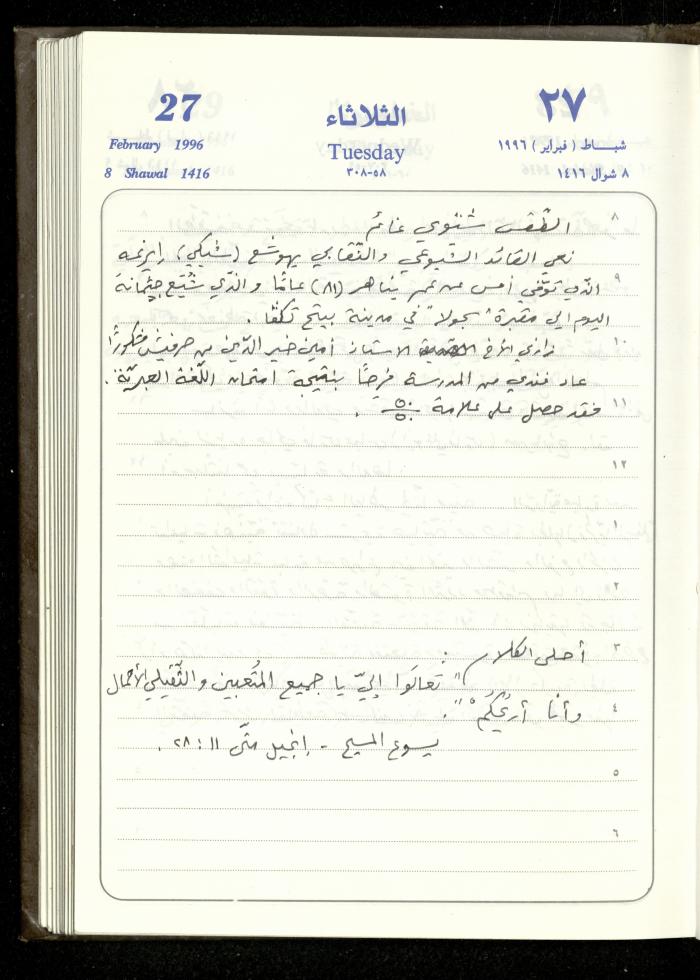 27 الثلاثاء ٢٧
February 1996 Tuesday شباط ( فبراير ) ١٩٩٦
8 Shawal 1416 ٣٠٨-٥٨ ٨ شوال ١٤١٦
٨ الطّقس شتوي غائم
نعى القائد الشيوعي والنّقابي يهوشع (شيكي) إيرغه
٩ الذّي توفّي أمس عن عمر يُناهز (٨١) عامًا والذّي شُيّع جثمانة
اليوم الى مقبرة "سجولا" في مدينة بيتح تكفا .
١٠ زارني الأخ الاستاذ أمين خير الدّين من حرفيش مشكورًا
عاد فندي من المدرسة فرحًا بنتيجة امتحان اللّغة العبريّة .
١١ فقد حصل على علامة ٥٠/٥٠ .
١٢
١
٢
٣ أحلى الكلام :
"تعالَوا إليّ يا جميع المُتعبين والثّقيلي الأحمال
٤ وأنا أُريحُكُمْ" .
يسوع المسيح - إنجيل متّى ١١ : ٢٨ .
٥
٦